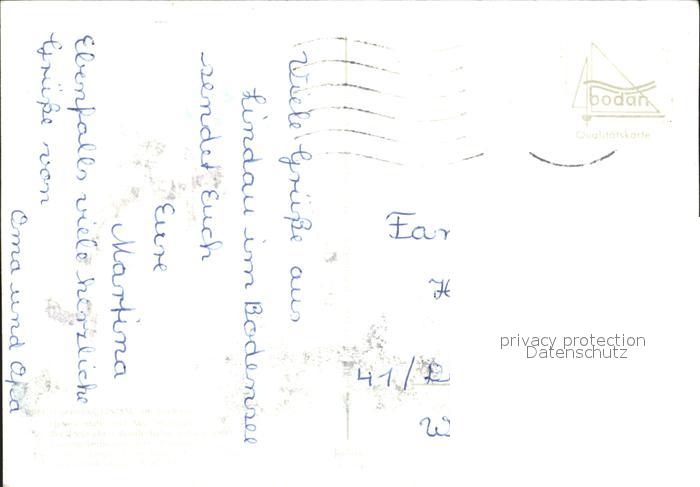 Viele Grüße aus
Lindau im Bodensee
sendet Euch
Eure
Martina
Ebenfalls viele herzliche
Grüße von
Oma und Opa
bodan
Qualitätskarte
Fam
H
41/2
W
privacy protection
Datenschutz